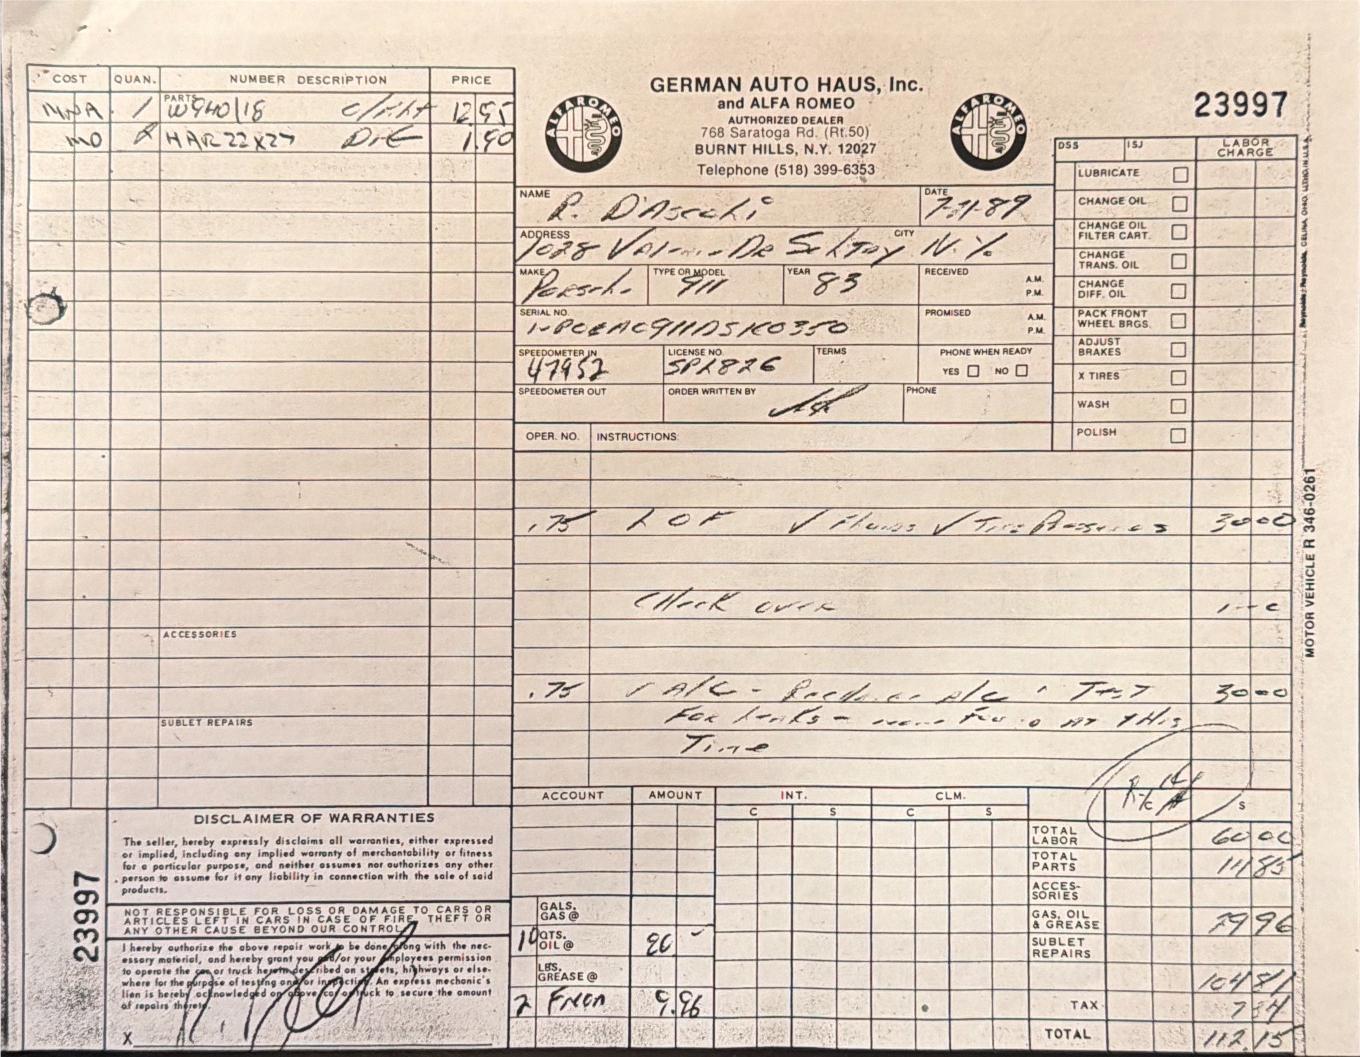 COST QUAN. NUMBER DESCRIPTION PRICE
1 PARTS W940/18 12.95
HAR22X27 1.90
ACCESSORIES
SUBLET REPAIRS
GERMAN AUTO HAUS, Inc.
and ALFA ROMEO
AUTHORIZED DEALER
768 Saratoga Rd. (Rt.50)
BURNT HILLS, N.Y. 12027
Telephone (518) 399-6353
ALFA ROMEO
ALFA ROMEO
23997
NAME R. D'Ascoli DATE 7-21-89
ADDRESS 1028 CITY N.Y.
MAKE Porsche TYPE OR MODEL 911 YEAR 83 RECEIVED A.M.
P.M.
SERIAL NO. PROMISED A.M.
P.M.
SPEEDOMETER IN 47952 LICENSE NO. TERMS PHONE WHEN READY
YES NO
SPEEDOMETER OUT ORDER WRITTEN BY PHONE
OPER. NO. INSTRUCTIONS:
DSS ISJ LABOR CHARGE
LUBRICATE
CHANGE OIL
CHANGE OIL
FILTER CART.
CHANGE
TRANS. OIL
CHANGE
DIFF. OIL
PACK FRONT
WHEEL BRGS.
ADJUST
BRAKES
X TIRES
WASH
POLISH
.75 LOF ✓ Fluids ✓ Tire Pressures 3000
Check over
.75 ✓ A/C - Recharge A/C Test 3000
For Leaks - none Found AT This
Time
ACCOUNT AMOUNT INT. CLM.
C S C S S
TOTAL
LABOR 6000
TOTAL
PARTS 1485
ACCES-
SORIES
GALS.
GAS @
GAS, OIL
& GREASE 2996
10 QTS.
OIL @ 20.-
SUBLET
REPAIRS
LBS.
GREASE @
10481
2 Freon 9.96
TAX 734
TOTAL 112.15
DISCLAIMER OF WARRANTIES
The seller, hereby expressly disclaims all warranties, either expressed
or implied, including any implied warranty of merchantability or fitness
for a particular purpose, and neither assumes nor authorizes any other
person to assume for it any liability in connection with the sale of said
products.
NOT RESPONSIBLE FOR LOSS OR DAMAGE TO CARS OR
ARTICLES LEFT IN CARS IN CASE OF FIRE, THEFT OR
ANY OTHER CAUSE BEYOND OUR CONTROL.
I hereby authorize the above repair work to be done along with the nec-
essary material, and hereby grant you and/or your employees permission
to operate the car or truck herein described on streets, highways or else-
where for the purpose of testing and/or inspection. An express mechanic's
lien is hereby acknowledged on above car or truck to secure the amount
of repairs thereto.
X
23997
MOTOR VEHICLE R 346-0261